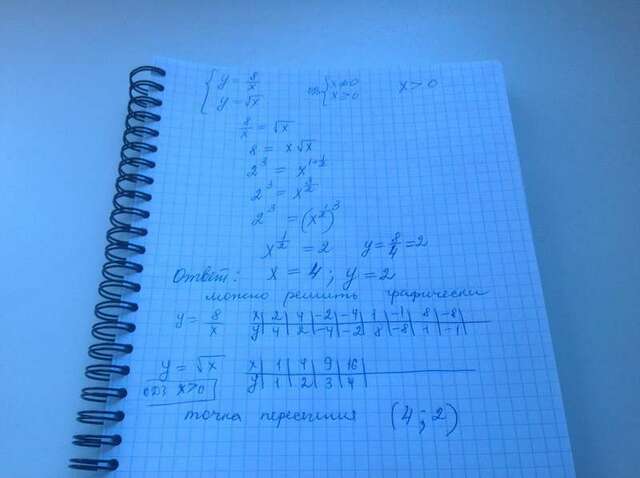 { y = 8/x ОДЗ { x ≠ 0 x > 0
{ y = √x { x ⩾ 0
8/x = √x
8 = x√x
2³ = x^(1+1/2)
2³ = x^(3/2)
2³ = (x^(1/2))³
x^(1/2) = 2 y = 8/4 = 2
Ответ: x = 4; y = 2
можно решить графически
y = 8/x x | 2 | 4 | -2 | -4 | 1 | -1 | 8 | -8 |
y | 4 | 2 | -4 | -2 | 8 | -8 | 1 | -1 |
y = √x x | 1 | 4 | 9 | 16 |
ОДЗ x>0 y | 1 | 2 | 3 | 4 |
точка пересечения (4; 2)